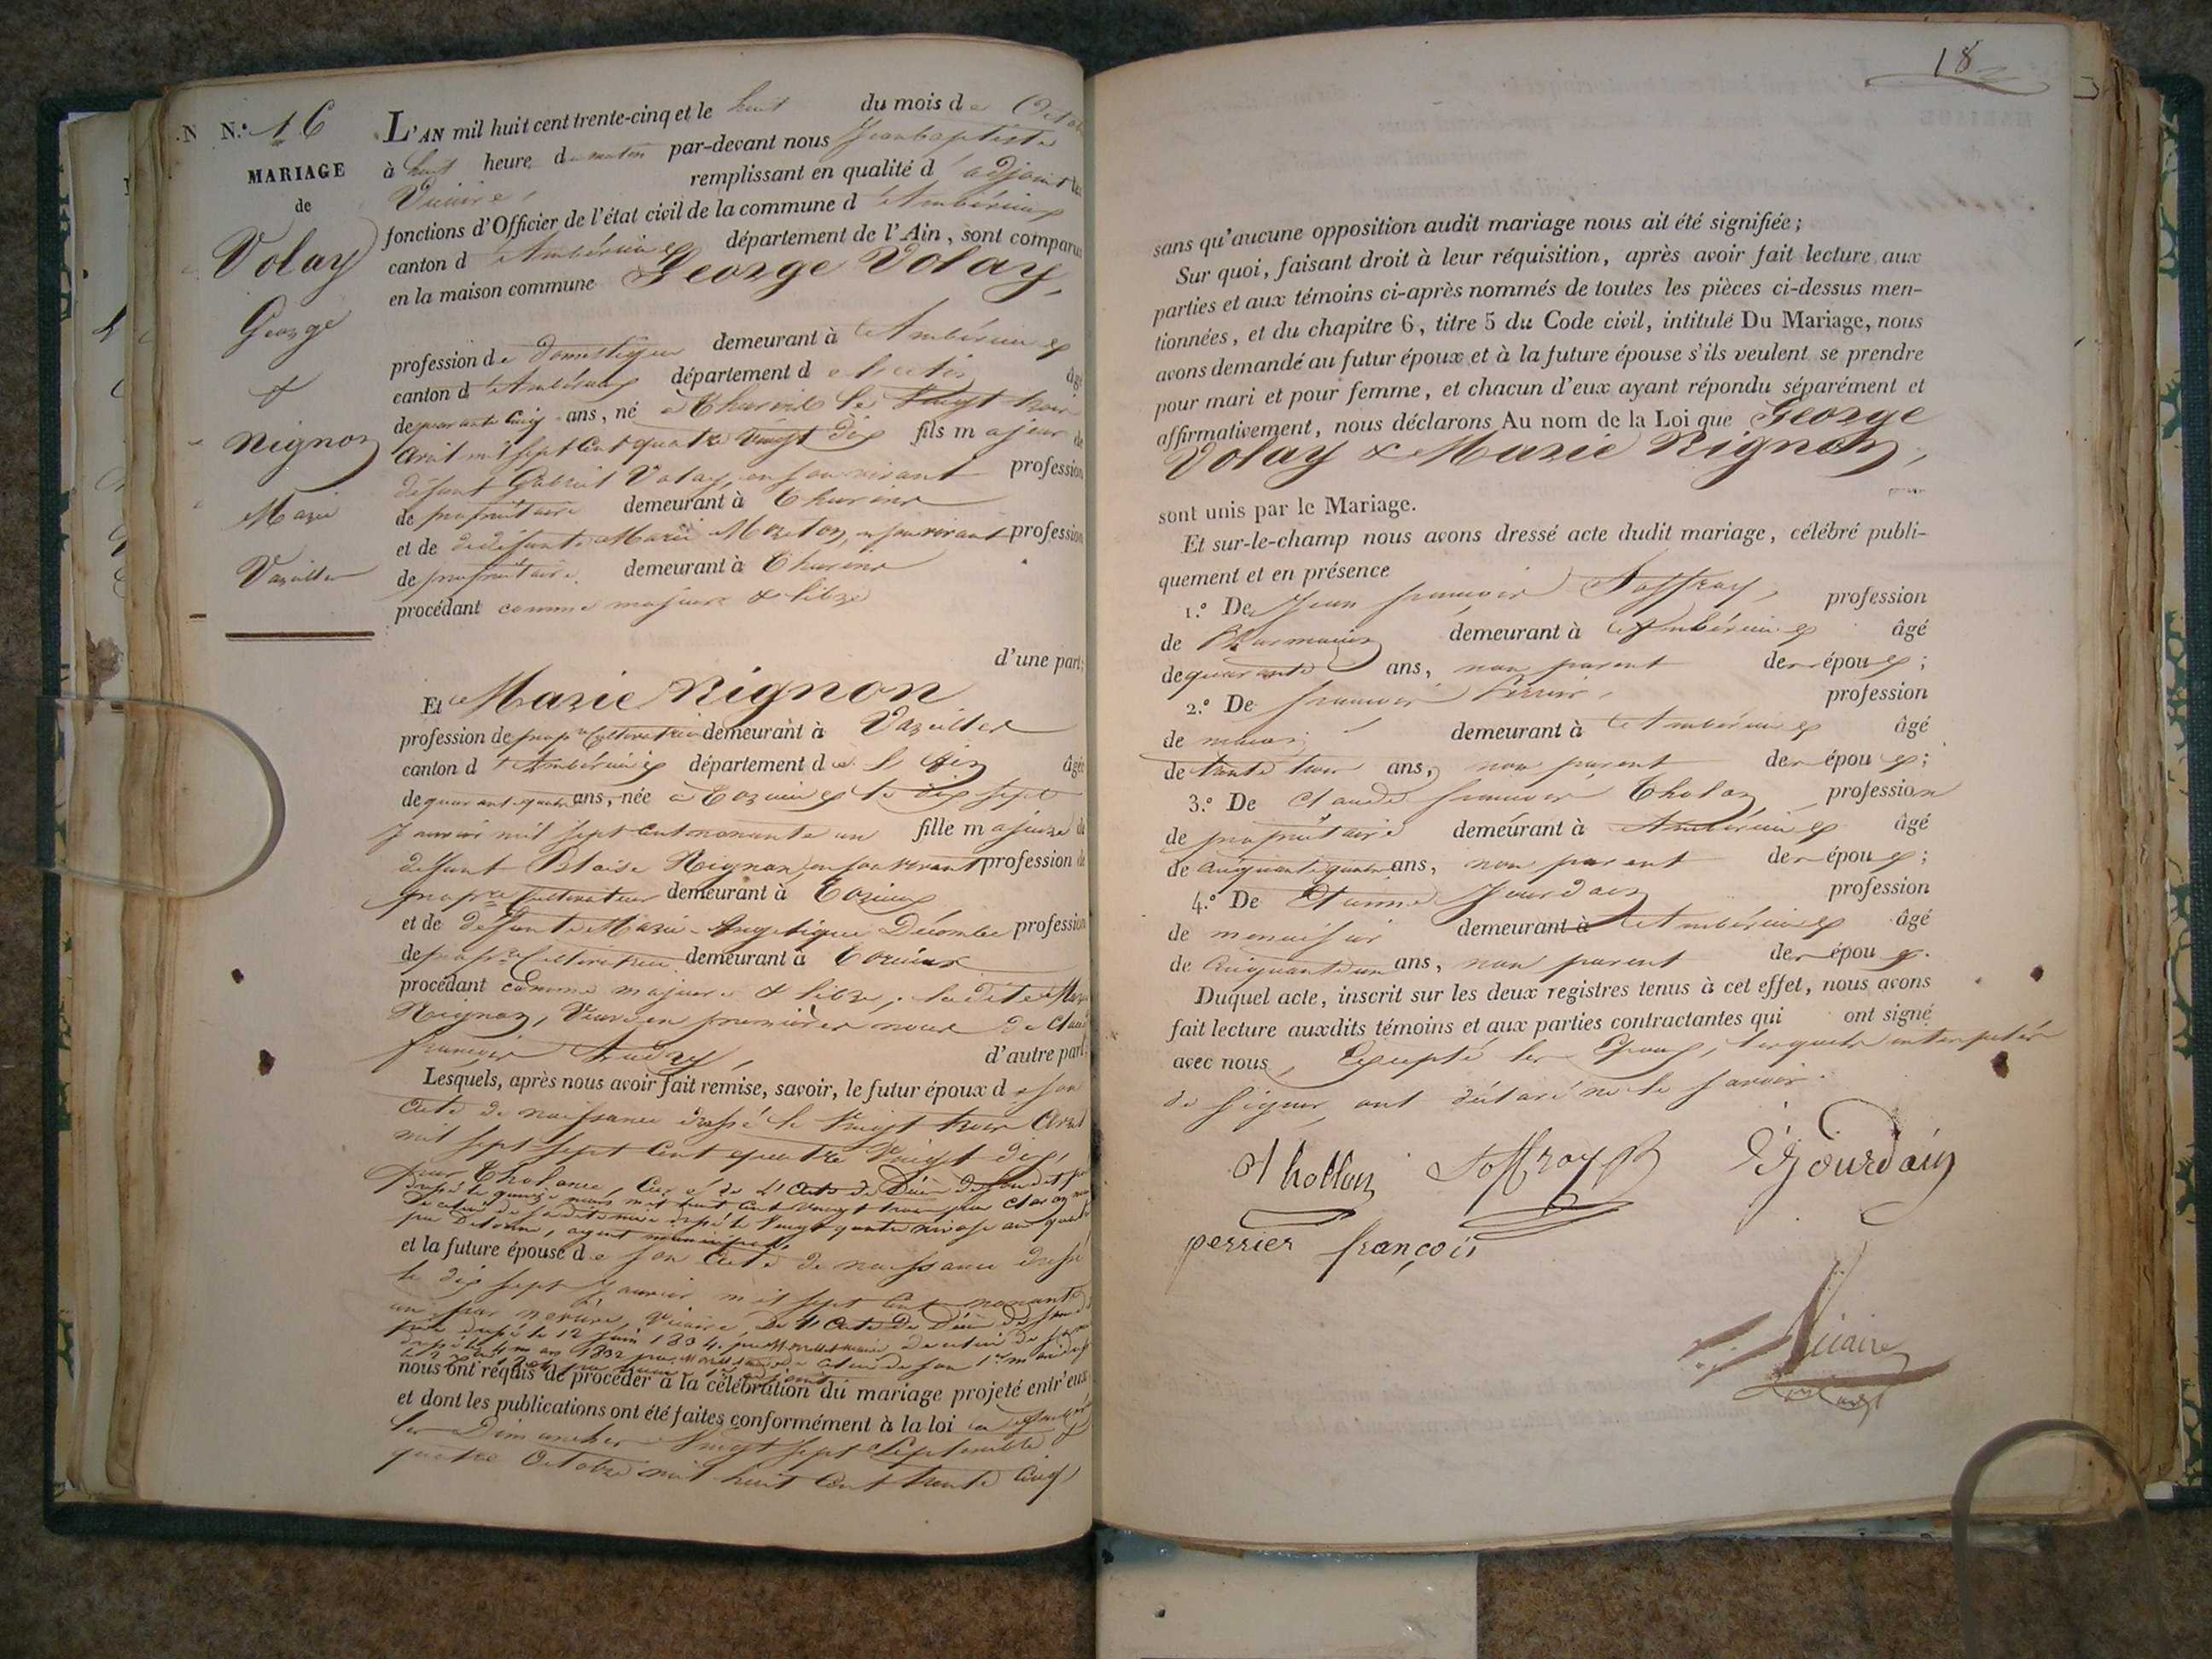 N N.° 16
MARIAGE
de
Volay
George
&
Rignon
Marie
Vareilles
L'AN mil huit cent trente-cinq et le huit du mois de Octobre
à huit heure du matin par-devant nous Jean baptiste
Vicaire, remplissant en qualité d'adjoint les
fonctions d'Officier de l'état civil de la commune d'Ambérieux
canton d'Ambérieux département de l'Ain, sont comparus
en la maison commune George Volay,
profession de domestique demeurant à Ambérieux
canton d'Ambérieux département de l'ain âgé
de quarante cinq ans, né à le Vingt trois
avril mil sept Cent quatre Vingt dix fils majeur de
défunt Gabriel Volay, en son vivant profession
de propriétaire demeurant à
et de défunte Marie en son vivant profession
de propriétaire demeurant à
procédant comme majeur & libre
d'une part;
Et Marie Rignon
profession de prop.re Cultivatrice demeurant à Vareilles
canton d'Ambérieux département de l'Ain âgée
de quarante quatre ans, née à Torcieux le dix sept
Janvier mil sept Cent nonante un fille majeure de
défunt Blaise Rignon en son vivant profession de
prop.re Cultivateur demeurant à Torcieux
et de défunte Marie-Angelique Décombe profession
de prop.re Cultivatrice demeurant à Torcieux
procédant comme majeure & libre; ladite Marie
Rignon, Veuve en premières noces de Claude
françois d'autre part,
Lesquels, après nous avoir fait remise, savoir, le futur époux de son
acte de naissance dressé le Vingt trois avril
mil sept sept Cent quatre Vingt dix,
par Curé de l'acte de Décès de son dit père
dressé le quinze mars mil huit Cent vingt trois par
de celui de sa dite mère dressé le Vingt quatre nivose an quatre
par agent municipal,
et la future épouse de son acte de naissance dressé
le dix sept Janvier mil sept Cent nonante
un par vicaire, De l'acte de Décès de son
père dressé le 12 juin 1834 par maire De celui de sa mère
1832 par de celui de son 1er mari
nous ont requis de procéder à la célébration du mariage projeté entr'eux
et dont les publications ont été faites conformément à la loi
les Dimanches Vingt sept Septembre &
quatre Octobre mil huit Cent trente Cinq
18
sans qu'aucune opposition audit mariage nous ait été signifiée;
Sur quoi, faisant droit à leur réquisition, après avoir fait lecture aux
parties et aux témoins ci-après nommés de toutes les pièces ci-dessus men-
tionnées, et du chapitre 6, titre 5 du Code civil, intitulé Du Mariage, nous
avons demandé au futur époux et à la future épouse s'ils veulent se prendre
pour mari et pour femme, et chacun d'eux ayant répondu séparément et
affirmativement, nous déclarons Au nom de la Loi que George
Volay & Marie Rignon,
sont unis par le Mariage.
Et sur-le-champ nous avons dressé acte dudit mariage, célébré publi-
quement et en présence
1.° De Jean françois Joffray, profession
de Pharmacien demeurant à Ambérieux âgé
de quarante ans, non parent des époux;
2.° De françois Perrier, profession
de maçon demeurant à Ambérieux âgé
de trente trois ans, non parent des époux;
3.° De Claude françois Thollon, profession
de propriétaire demeurant à Ambérieux âgé
de cinquante quatre ans, non parent des époux;
4.° De Etienne Jourdain profession
de menuisier demeurant à Ambérieux âgé
de Cinquante un ans, non parent des époux.
Duquel acte, inscrit sur les deux registres tenus à cet effet, nous avons
fait lecture auxdits témoins et aux parties contractantes qui ont signé
avec nous, Excepté les Epoux, lesquels interpellés
de signer ont déclaré ne le savoir.
Thollon Joffray E Jourdain
perrier françois
Vicaire